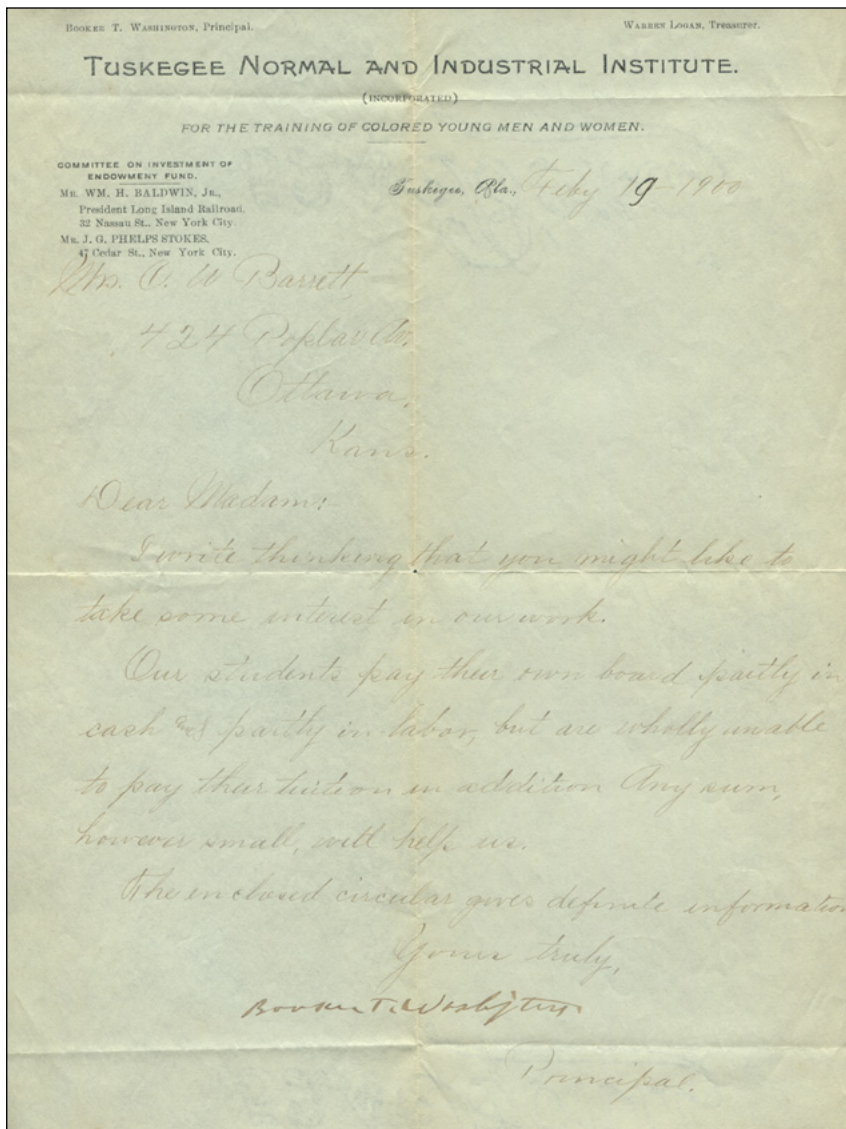 BOOKER T. WASHINGTON, Principal.
WARREN LOGAN, Treasurer.
TUSKEGEE NORMAL AND INDUSTRIAL INSTITUTE.
(INCORPORATED)
FOR THE TRAINING OF COLORED YOUNG MEN AND WOMEN.
COMMITTEE ON INVESTMENT OF
ENDOWMENT FUND.
MR. WM. H. BALDWIN, JR.,
President Long Island Railroad,
32 Nassau St., New York City.
MR. J. G. PHELPS STOKES,
47 Cedar St., New York City.
Tuskegee, Ala., Feby 19 - 1900
Mrs. O. W Barrett
424 Poplar Av.
Ottawa,
Kans.
Dear Madam:
I write thinking that you might like to
take some interest in our work.
Our students pay their own board partly in
cash and partly in labor, but are wholly unable
to pay their tuition in addition Any sum,
however small, will help us.
The enclosed circular gives definite information
Yours truly,
Booker T. Washington
Principal.